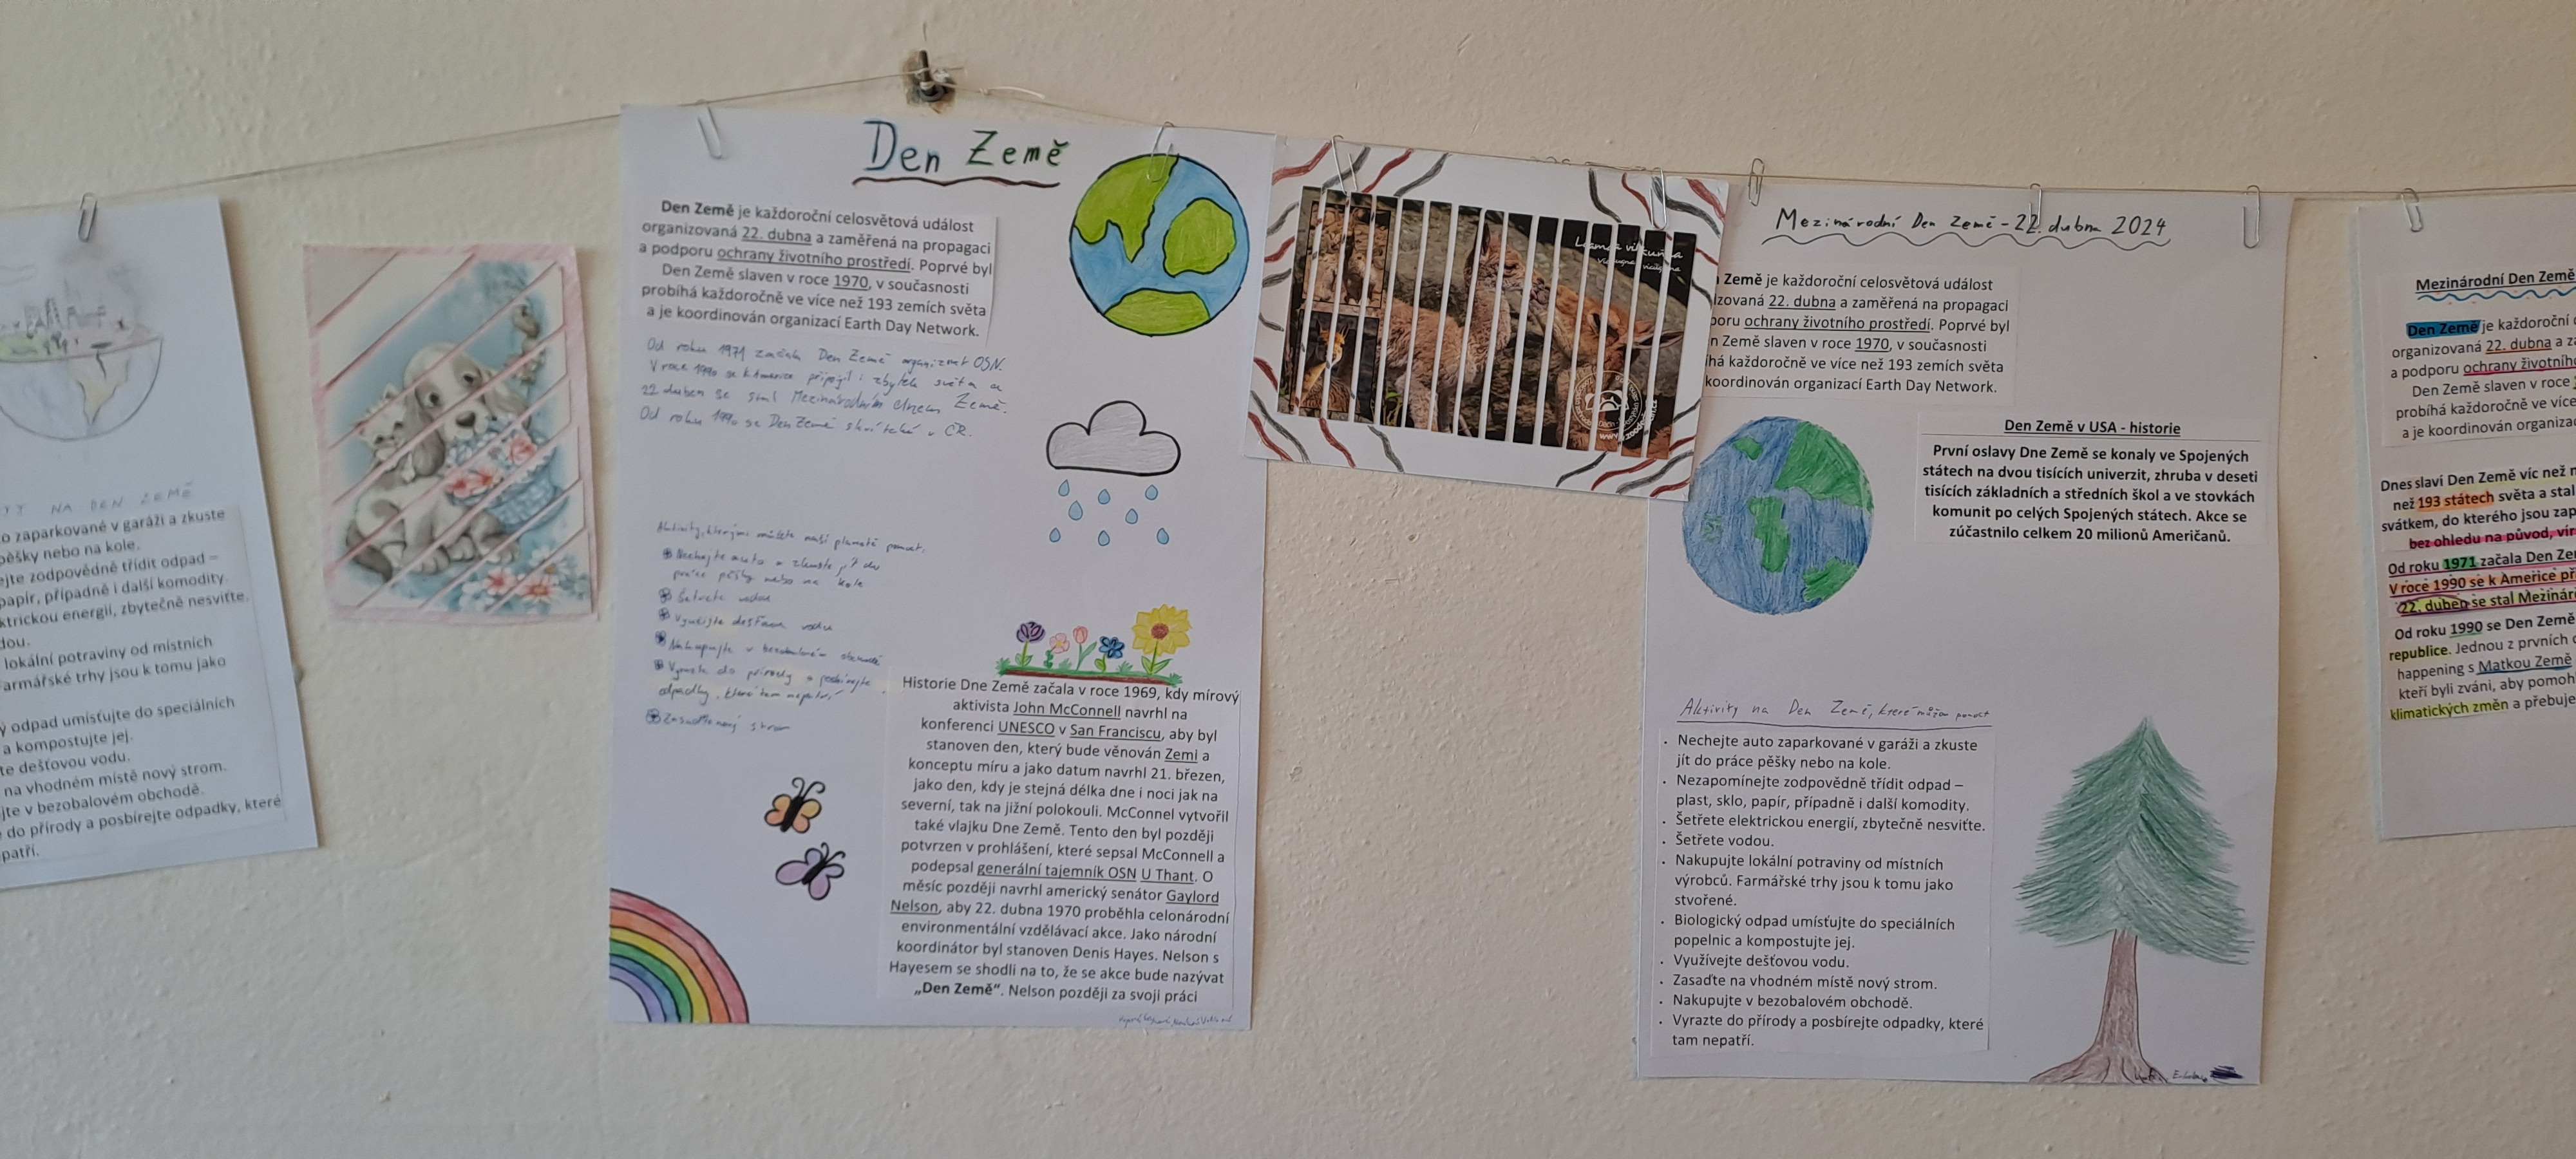 TY NA DEN ZEMĚ
o zaparkované v garáži a zkuste
pěšky nebo na kole.
ejte zodpovědně třídit odpad –
papír, případně i další komodity.
ktrickou energii, zbytečně nesviťte.
dou.
lokální potraviny od místních
armářské trhy jsou k tomu jako
ý odpad umísťujte do speciálních
a kompostujte jej.
te dešťovou vodu.
na vhodném místě nový strom.
jte v bezobalovém obchodě.
do přírody a posbírejte odpadky, které
patří.
Den Země
Den Země je každoroční celosvětová událost
organizovaná 22. dubna a zaměřená na propagaci
a podporu ochrany životního prostředí. Poprvé byl
Den Země slaven v roce 1970, v současnosti
probíhá každoročně ve více než 193 zemích světa
a je koordinován organizací Earth Day Network.
Od roku 1971 začala Den Země organizovat OSN.
V roce 1990 se k Americe připojil i zbytek světa a
22 duben se stal Mezinárodním dnem Země.
Od roku 1990 se Den Země slaví také v ČR.
Aktivity, kterými můžete naší planetě pomoct.
Nechejte auto a zkuste jít do
práce pěšky nebo na kole
Šetřete vodou
Využijte dešťovou vodu
Nakupujte v bezobalovém obchodě
Vyrazte do přírody a posbírejte
odpadky, které tam nepatří
Zasaďte nový strom
Historie Dne Země začala v roce 1969, kdy mírový
aktivista John McConnell navrhl na
konferenci UNESCO v San Franciscu, aby byl
stanoven den, který bude věnován Zemi a
konceptu míru a jako datum navrhl 21. březen,
jako den, kdy je stejná délka dne i noci jak na
severní, tak na jižní polokouli. McConnel vytvořil
také vlajku Dne Země. Tento den byl později
potvrzen v prohlášení, které sepsal McConnell a
podepsal generální tajemník OSN U Thant. O
měsíc později navrhl americký senátor Gaylord
Nelson, aby 22. dubna 1970 proběhla celonárodní
environmentální vzdělávací akce. Jako národní
koordinátor byl stanoven Denis Hayes. Nelson s
Hayesem se shodli na to, že se akce bude nazývat
„Den Země“. Nelson později za svoji práci
Mezinárodní Den Země - 22. dubna 2024
Země je každoroční celosvětová událost
izovaná 22. dubna a zaměřená na propagaci
poru ochrany životního prostředí. Poprvé byl
n Země slaven v roce 1970, v současnosti
íhá každoročně ve více než 193 zemích světa
koordinován organizací Earth Day Network.
Den Země v USA - historie
První oslavy Dne Země se konaly ve Spojených
státech na dvou tisících univerzit, zhruba v deseti
tisících základních a středních škol a ve stovkách
komunit po celých Spojených státech. Akce se
zúčastnilo celkem 20 milionů Američanů.
Aktivity na Den Země, které můžou pomoct
Nechejte auto zaparkované v garáži a zkuste
jít do práce pěšky nebo na kole.
Nezapomínejte zodpovědně třídit odpad –
plast, sklo, papír, případně i další komodity.
Šetřete elektrickou energií, zbytečně nesviťte.
Šetřete vodou.
Nakupujte lokální potraviny od místních
výrobců. Farmářské trhy jsou k tomu jako
stvořené.
Biologický odpad umísťujte do speciálních
popelnic a kompostujte jej.
Využívejte dešťovou vodu.
Zasaďte na vhodném místě nový strom.
Nakupujte v bezobalovém obchodě.
Vyrazte do přírody a posbírejte odpadky, které
tam nepatří.
Mezinárodní Den Země
Den Země je každoroční
organizovaná 22. dubna a za
a podporu ochrany životního
Den Země slaven v roce
probíhá každoročně ve více
a je koordinován organizac
Dnes slaví Den Země víc než
než 193 státech světa a stal
svátkem, do kterého jsou zap
bez ohledu na původ, vír
Od roku 1971 začala Den Ze
V roce 1990 se k Americe př
22. duben se stal Mezinár
Od roku 1990 se Den Země
republice. Jednou z prvních
happening s Matkou Země
kteří byli zváni, aby pomoh
klimatických změn a přebuje